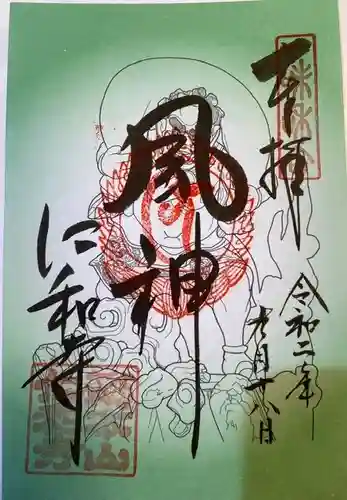 奉拝
令和二年
九月十八日
風神
仁和寺